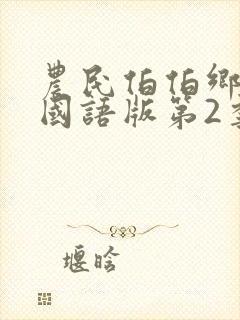 農民伯伯鄉
國語版第2季
堰晗